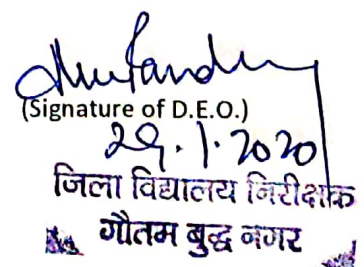 (Signature of D.E.O.)
29.1.2020
जिला विद्यालय निरीक्षक
गौतम बुद्ध नगर